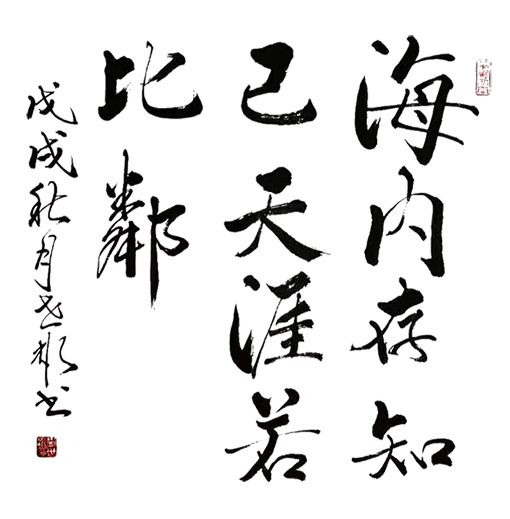 海内存知
己天涯若
比鄰
戊戌秋月世彬书